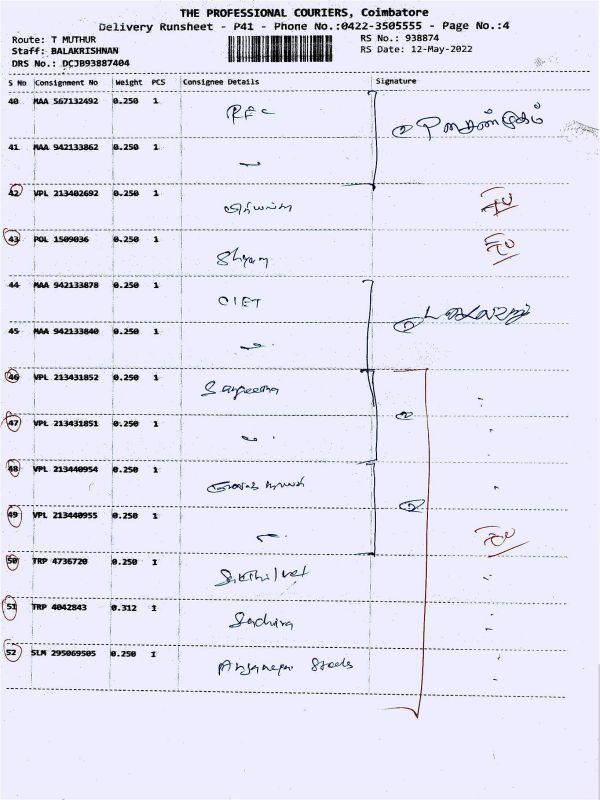 THE PROFESSIONAL COURIERS, Coimbatore
Delivery Runsheet - P41 - Phone No.:0422-3505555 - Page No.:4
Route: T MUTHUR RS No.: 938874
Staff: BALAKRISHNAN RS Date: 12-May-2022
DRS No.: DCJB93887404
S No Consignment No Weight PCS Consignee Details Signature
40 MAA 567132492 0.250 1
41 MAA 942133862 0.250 1
42 VPL 213402692 0.250 1
43 POL 1509036 0.250 1
Shyam
44 MAA 942133878 0.250 1
CIET
45 MAA 942133840 0.250 1
46 VPL 213431852 0.250 1
Sangeetha
47 VPL 213431851 0.250 1
48 VPL 213440954 0.250 1
49 VPL 213440955 0.250 1
50 TRP 4736720 0.250 1
Sakthivel
51 TRP 4042843 0.312 1
52 SLM 295069505 0.250 1
Steels